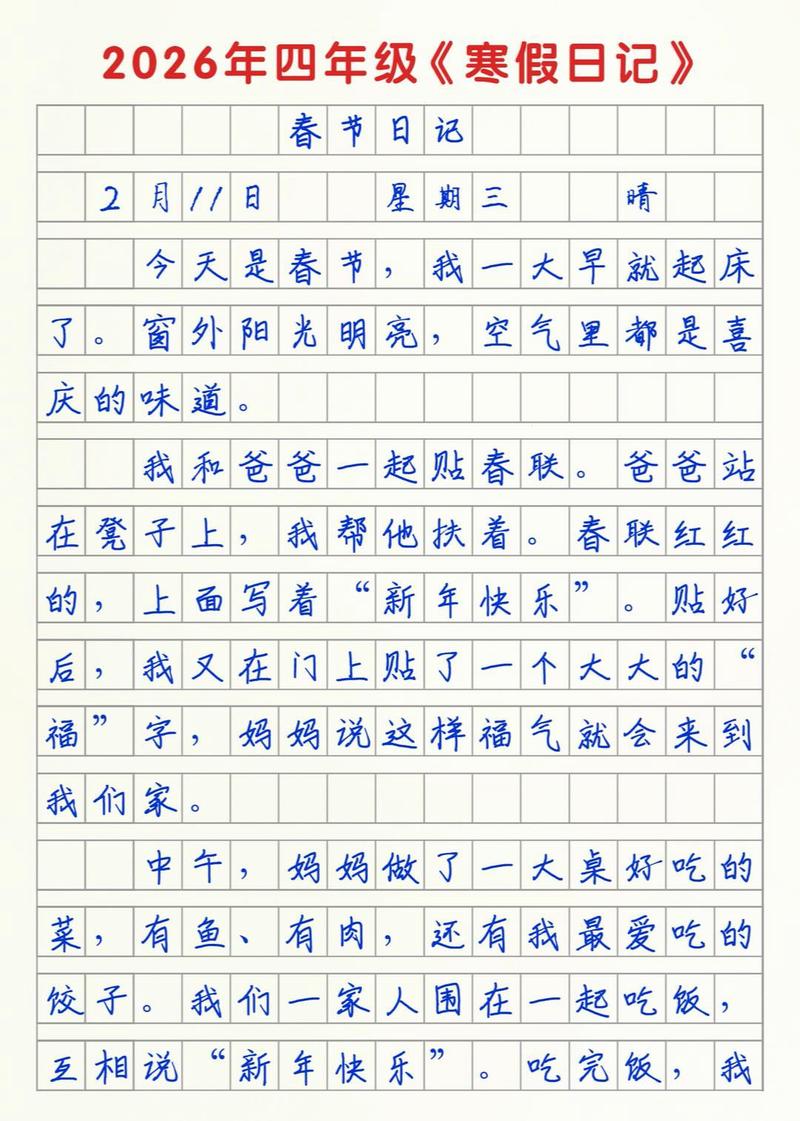 2026年四年级《寒假日记》
春节日记
2月11日 星期三 晴
今天是春节，我一大早就起床
了。窗外阳光明亮，空气里都是喜
庆的味道。
我和爸爸一起贴春联。爸爸站
在凳子上，我帮他扶着。春联红红
的，上面写着“新年快乐”。贴好
后，我又在门上贴了一个大大的“
福”字，妈妈说这样福气就会来到
我们家。
中午，妈妈做了一大桌好吃的
菜，有鱼、有肉，还有我最爱吃的
饺子。我们一家人围在一起吃饭，
互相说“新年快乐”。吃完饭，我